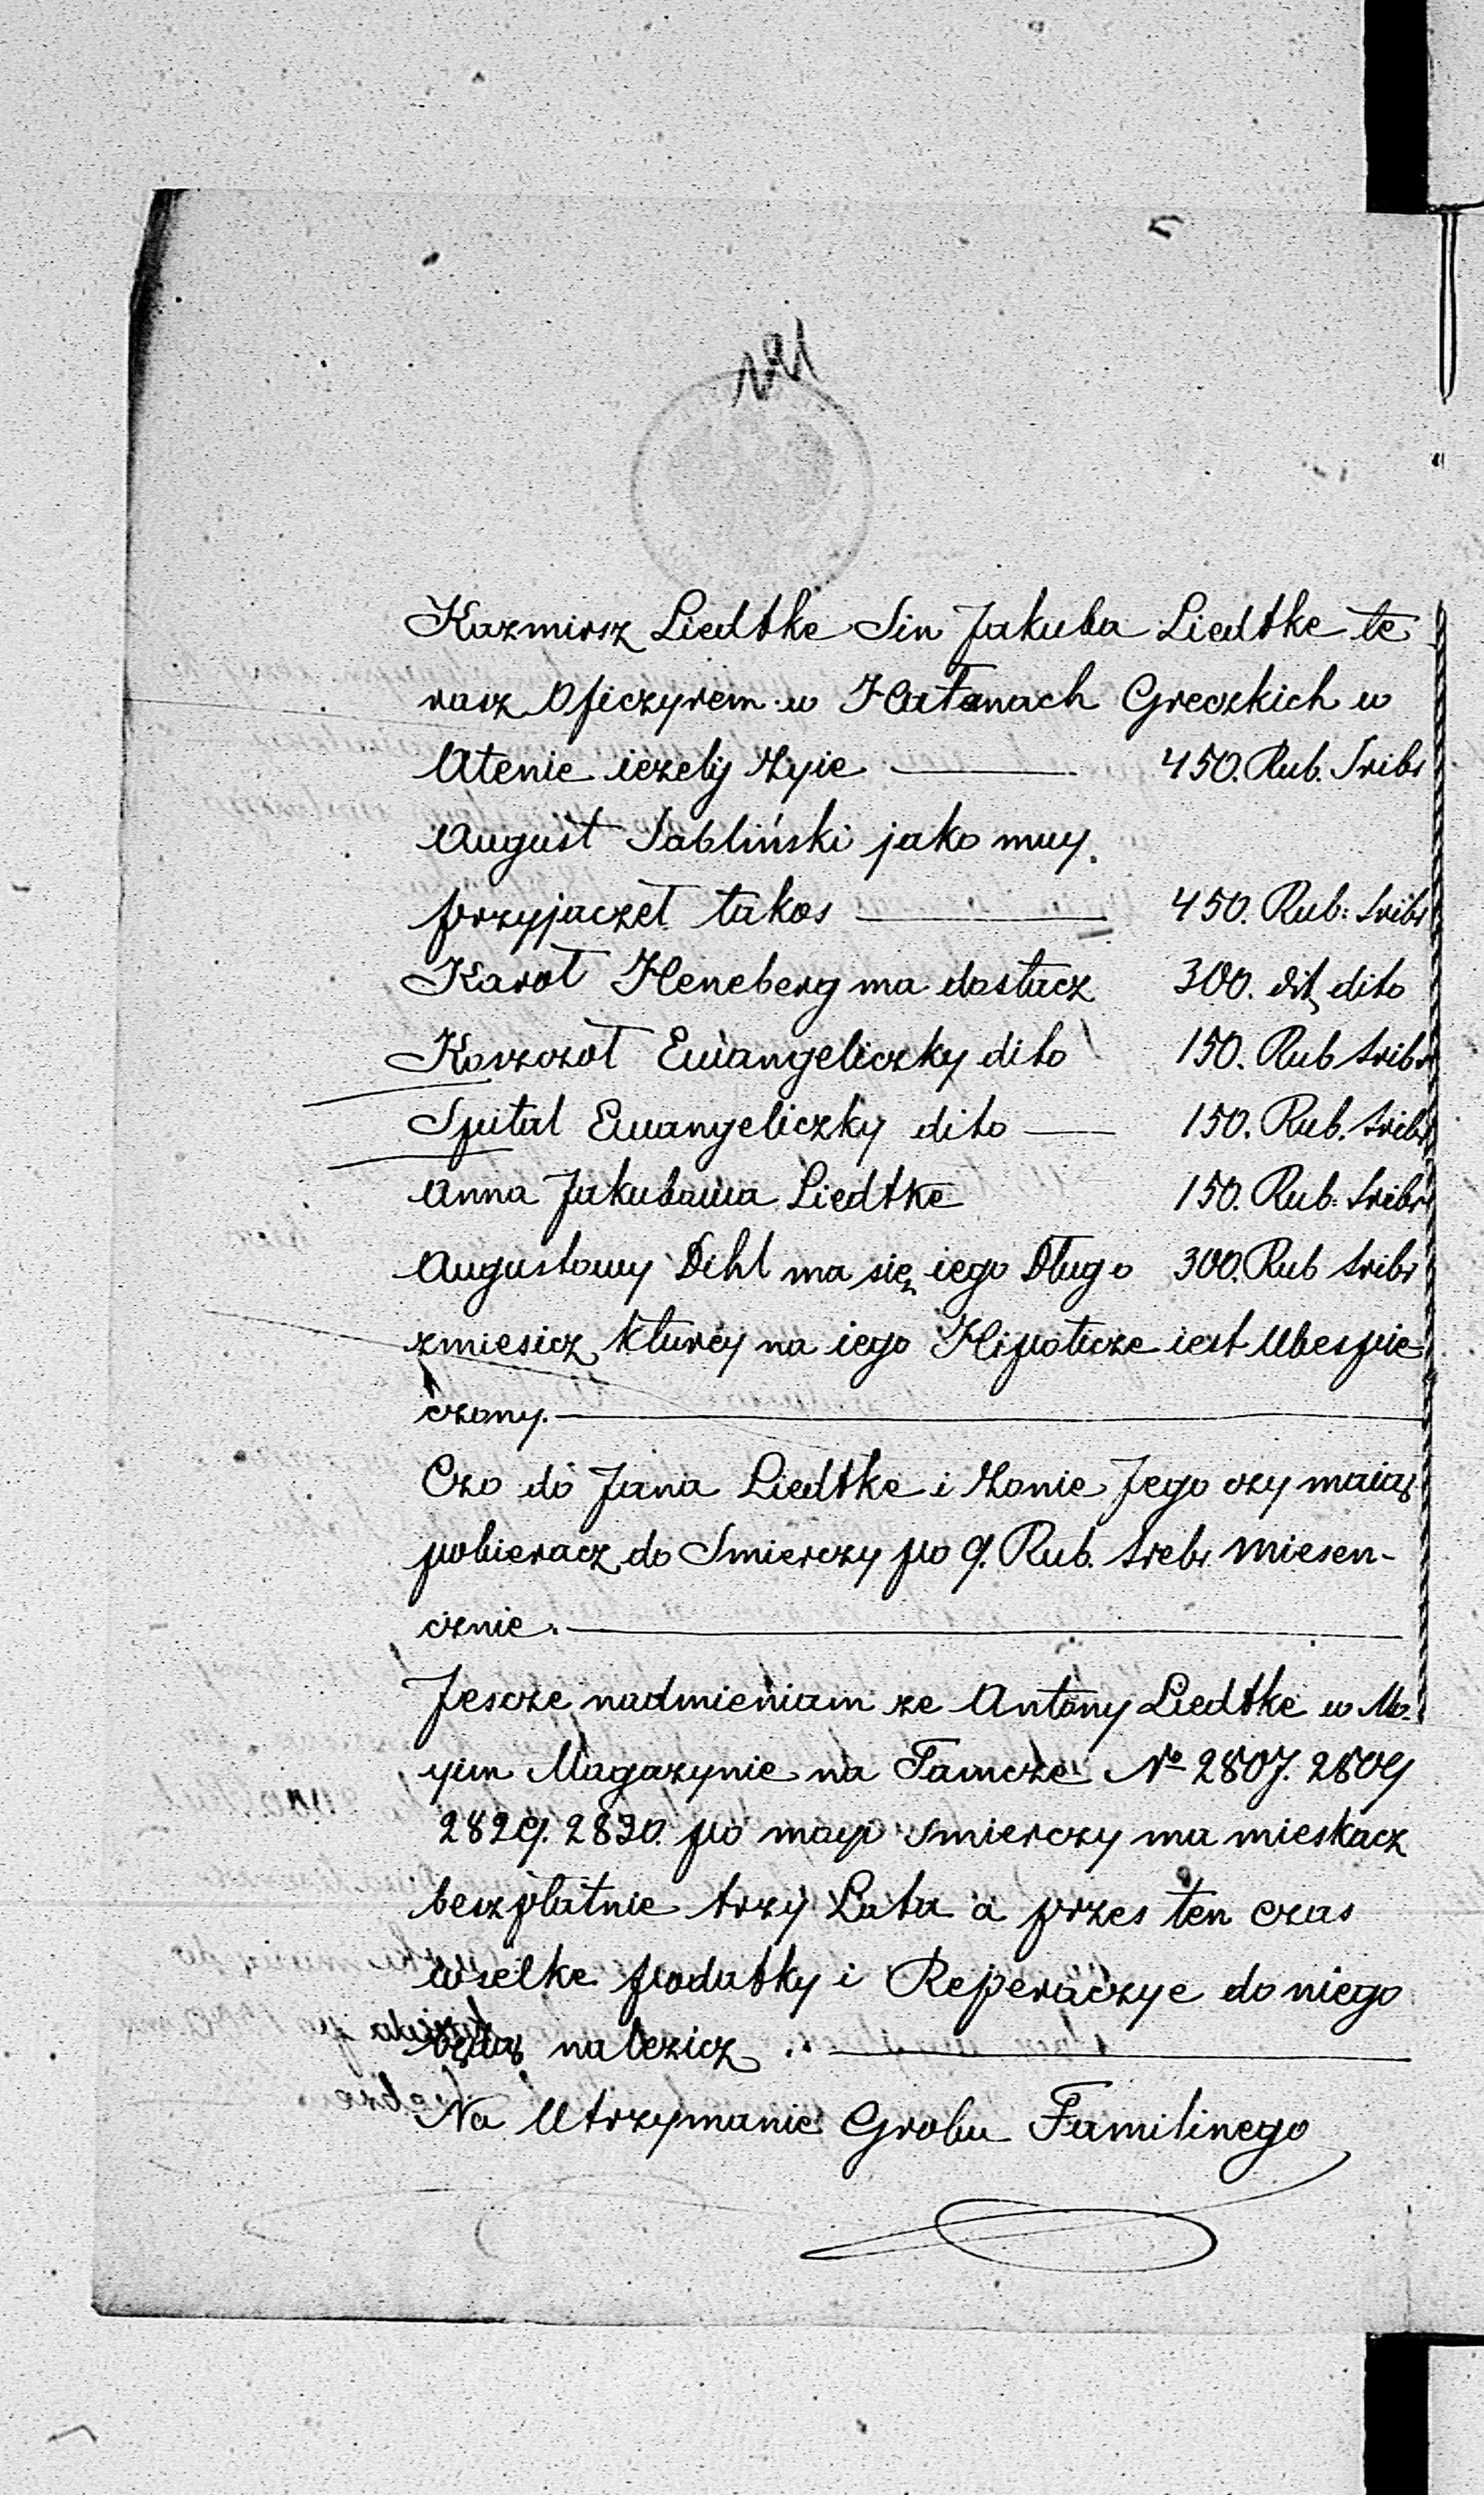 191
Kazmirsz Liedtke Sin Jakuba Liedtke te
rasz Oficzyrem w Hułanach Greczkich w
Atenie iezelij Zyie 450. Rub. Sribr
August Jabliński jako muy
przyjaczel takos 450. Rub: Sribr
Karol Heneberg ma dostacz 300. dito
Koszczoł Ewangeliczky dito 150. Rub Sribr
Spital Ewangeliczky dito 150. Rub. Sribr
Anna Jakubawa Liedtke 150. Rub: Sribr
Augustowy Dihl ma się iego Długo 300. Rub Sribr
zmiesicz kturey na iego Hipoticze iest Ubespie
czony.
Czo do Jana Liedtke i Zonie Jego czy maią
pobieracz do Smierczy po 9. Rub. Srebr miesen-
cznie.
Jescze nadmieniam ze Antony Liedtke w Mo-
yim Magazynie na Tamcze No 2807. 2809
2829. 2830. po mayi Smierczy ma mieskacz
beszplatnie trzy Lata a przes ten czas
wselke podatky i Reperaczye do niego
będą nalezicz
Na Utrzymanie Grobu Familinego